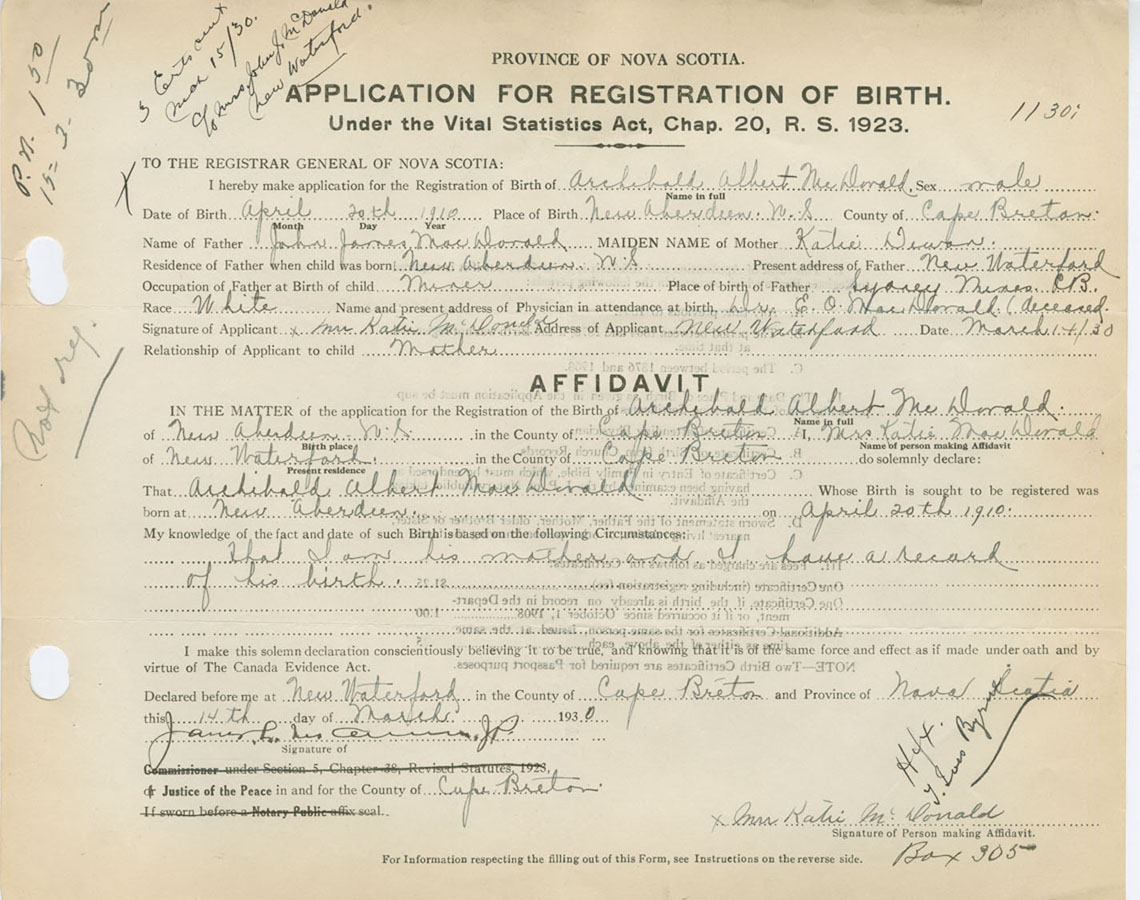 3 Certs sent
Mar 15/30.
c/o Mrs. John J. McDonald
New Waterford.
P.N. 1 50
15-3-30
PROVINCE OF NOVA SCOTIA.
APPLICATION FOR REGISTRATION OF BIRTH.
Under the Vital Statistics Act, Chap. 20, R. S. 1923.
1130
X
TO THE REGISTRAR GENERAL OF NOVA SCOTIA:
I hereby make application for the Registration of Birth of Archibald Albert McDonald. Sex male
Name in full
Date of Birth April 20th 1910 Place of Birth New Aberdeen. N.S County of Cape Breton.
Month Day Year
Name of Father John James MacDonald MAIDEN NAME of Mother Katie
Residence of Father when child was born New Aberdeen. N.S Present address of Father New Waterford
Occupation of Father at Birth of child Miner Place of birth of Father Sydney Mines C.B.
Race White Name and present address of Physician in attendance at birth, Dr. E. O. MacDonald (deceased.
Signature of Applicant x Mrs Katie McDonald Address of Applicant New Waterford Date March 14/30
Relationship of Applicant to child Mother
Not reg.
AFFIDAVIT
IN THE MATTER of the application for the Registration of the Birth of Archibald Albert McDonald.
Name in full
of New Aberdeen. N.S. in the County of Cape Breton I, Mrs Katie MacDonald
Birth place Name of person making Affidavit
of New Waterford. in the County of Cape Breton do solemnly declare:
Present residence
That Archibald Albert MacDonald Whose Birth is sought to be registered was
born at New Aberdeen. on April 20th 1910.
My knowledge of the fact and date of such Birth is based on the following Circumstances:
That I am his mother and I have a record
of his birth.
I make this solemn declaration conscientiously believing it to be true, and knowing that it is of the same force and effect as if made under oath and by
virtue of The Canada Evidence Act.
Declared before me at New Waterford in the County of Cape Breton and Province of Nova Scotia
this 14th day of March 1930
J.P.
Signature of
Commissioner under Section 5, Chapter 38, Revised Statutes, 1923,
or Justice of the Peace in and for the County of Cape Breton
If sworn before a Notary Public affix seal.
x Mrs Katie McDonald
Signature of Person making Affidavit.
Box 305
For Information respecting the filling out of this Form, see Instructions on the reverse side.